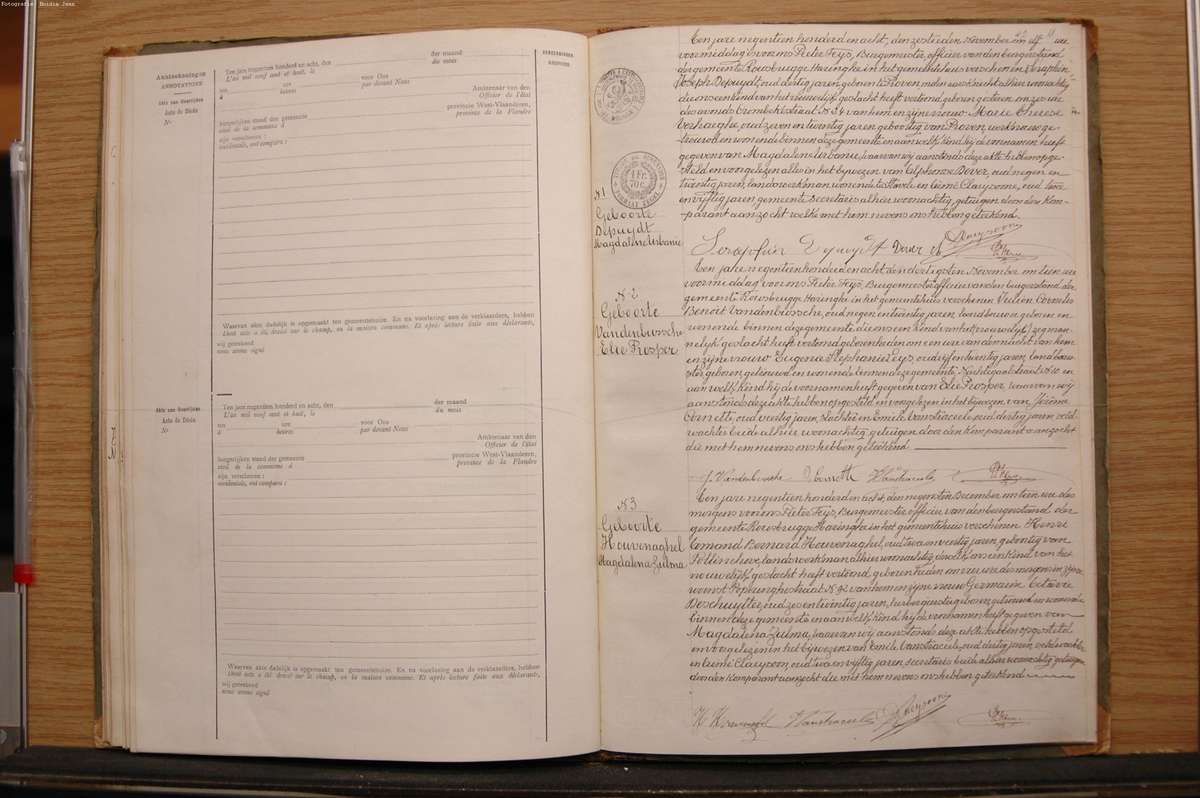 Fotografie: Boidin Jean
Aanteekeningen
ANNOTATIONS
Akte van Overlijden
Acte de Décès
Nr
Ten jare negentien honderd en acht, den
der maand
L'an mil neuf cent et huit, le
du mois
ten
ure
voor Ons
à
heures
par devant Nous
Ambtenaar van den
Officier de l'état
burgerlijken stand der gemeente
provincie West-Vlaanderen,
civil de la commune à
province de la Flandre
zijn verschenen :
occidentale, ont comparu :
Waarvan akte dadelijk is opgemaakt ten gemeentehuize. En na voorlezing aan de verklaarders, hebben
Dont acte a été dressé sur le champ, en la maison commune. Et après lecture faite aux déclarants,
wij geteekend
nous avons signé
Akte van Overlijden
Acte de Décès
Nr
Ten jare negentien honderd en acht, den
der maand
L'an mil neuf cent et huit, le
du mois
ten
ure
voor Ons
à
heures
par devant Nous
Ambtenaar van den
Officier de l'état
burgerlijken stand der gemeente
provincie West-Vlaanderen,
civil de la commune à
province de la Flandre
zijn verschenen :
occidentale, ont comparu :
Waarvan akte dadelijk is opgemaakt ten gemeentehuize. En na voorlezing aan de verklaarders, hebben
Dont acte a été dressé sur le champ, en la maison commune. Et après lecture faite aux déclarants,
wij geteekend
nous avons signé
N 1
Geboorte
Depuydt
Magdalena Urbanie
Een jare negentien honderd en acht, den zestienden November om elf ure
voormiddag voor ons Pieter Feys, Burgemeester, officier van den burgerstand
der gemeente Rousbrugge Haringhe, in het gemeentehuis verschenen Seraphin
Joseph Depuydt, oud dertig jaren, geboren te Proven, molenaarsknecht alhier woonachtig
die ons een kind van het vrouwelijk geslacht heeft vertoond, geboren gisteren om zes ure
des avonds Crombekestraat N van hem en zijne vrouw Marie Therese
Verhaeghe, oud zeven en twintig jaren, geboortig van Proven, werkvrouw ge-
trouwd en wonende binnen deze gemeente en aan welk kind hij de voornamen heeft
gegeven van Magdalena Urbanie, waarvan wij aanstonds deze akte hebben opge-
steld en voorgelezen alles in het bijwezen van Alphonse Dever, oud negen en
twintig jaren, landswerkman wonende te Stavele en Camé Clarysoone, oud twee
en vijftig jaren, gemeente secretaris alhier woonachtig, getuigen door den Kom-
parant aanzocht welke met hem nevens ons hebben geteekend.
Serafhin Depuydt Dever Clarysoone
N 2
Geboorte
Vandenbussche
Elie Prosper
Een jare negentien honderd en acht den dertigsten November om tien ure
voormiddag voor ons Pieter Feys, Burgemeester officier van den burgerstand der
gemeente Rousbrugge Haringhe in het gemeentehuis verschenen Julien Cornelis
Benoit Vandenbussche, oud negen en twintig jaren, landbouwer, geboren en
wonende binnen deze gemeente die ons een kind van het
nelijk geslacht heeft vertoond geboren heden om een ure van den nacht van hem
en zijne vrouw Eugenie Stephanie Feys, oud vijf en twintig jaren, landbouw-
ster, geboren, getrouwd en wonende binnen deze gemeente, Nachtegaalstraat N 10 en
aan welk kind hij de voornamen heeft gegeven van Elie Prosper waarvan wij
aanstonds deze akte hebben opgesteld en voorgelezen in het bijwezen van Jérôme
Cornette, oud veertig jaren, slachter en Emile Vanstraceele, oud dertig jaren veld-
wachter beide alhier woonachtig, getuigen door den Komparant aanzocht
die met hem nevens ons hebben geteekend
J. Vandenbussche Cornette Vanstraceele
N 3
Geboorte
Houvenaghel
Magdalena Zulma
Een jare negentien honderd en acht, den negensten December om tien ure des
morgens voor ons Pieter Feys, Burgemeester officier van den burgerstand der
gemeente Rousbrugge Haringhe in het gemeentehuis verschenen Henri
Camond Bernard Houvenaghel, oud twee en veertig jaren, geboortig van
Pollinchove, landswerkman alhier woonachtig, dewelk ons een kind van het
vrouwelijk geslacht heeft vertoond geboren heden om zes ure des morgens in zijne
woonst Poperinghestraat N van hem en zijne vrouw Germaine Octavie
Deschuytter, oud zes en twintig jaren, herbergierster geboren, getrouwd en wonende
binnen deze gemeente en aan welk kind hij de voornamen heeft gegeven van
Magdalena Zulma, waarvan wij aanstonds deze akte hebben opgesteld
en voorgelezen in het bijwezen van Emile Vanstraceele, oud dertig jaren, veldwachter
en Camé Clarysoone, oud twee en vijftig jaren, secretaris beide alhier woonachtig getuigen
door den Komparant aanzocht die met hem nevens ons hebben geteekend
H Houvenaghel Vanstraceele Clarysoone